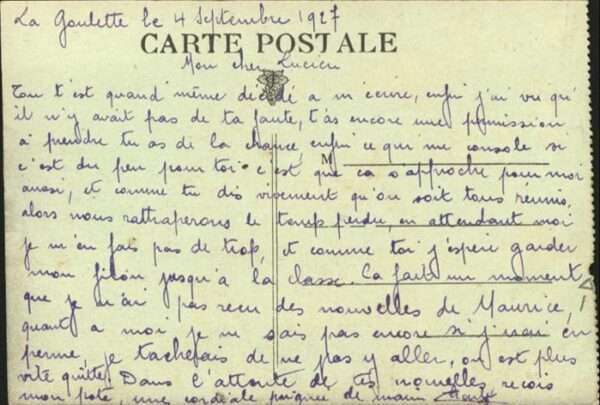 La Goulette le 4 Septembre 1927
CARTE POSTALE
Mon cher Lucien
Tou t'est quand même décidé a m'ecrire, enfin j'ai vu qu'
il n'y avait pas de ta faute, t'as encore une permission
à prendre tu as de la chance, enfin ce qui me console si
c'est du peu pour toi c'est que ca s'approche pour moi
M
aussi, et comme tu dis vivement qu'on soit tous réunis,
alors nous rattraperons le temps perdu, en attendant moi
je m'en fais pas de trop, et comme toi j'espère garder
mon filon jusqu'à la classe. Ca fait un moment
que je n'ai pas recu des nouvelles de Maurice,
quant a moi je ne sais pas encore si j'irai en
perme, je tacherais de ne pas y aller, on est plus
vite quitte. Dans l'attente de tes nouvelles recois
mon pote, une cordiale poignée de main